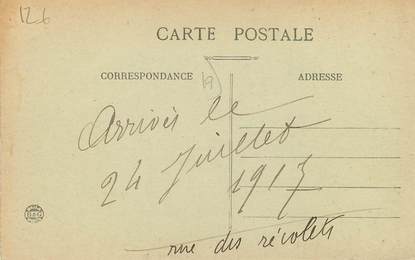 12 6
CARTE POSTALE
CORRESPONDANCE
ADRESSE
Arrivés le
24 Juillet
1917
rue des récolets